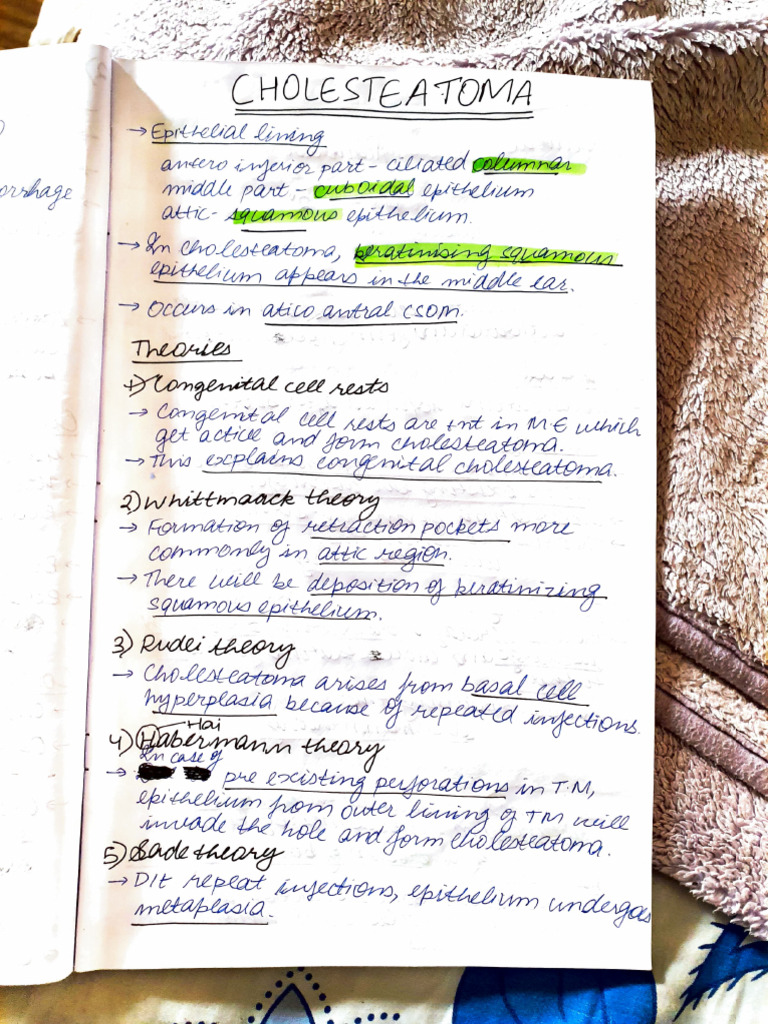 orrhage
CHOLESTEATOMA
→ Epithelial lining
antero inferior part - ciliated columnar
middle part - cuboidal epithelium
attic - squamous epithelium.
→ In cholesteatoma, keratinising squamous
epithelium appears in the middle ear.
→ Occurs in atico antral CSOM.
Theories
1) Congenital cell rests
→ Congenital cell rests are +nt in M E which
get active and form cholesteatoma.
→ This explains congenital cholesteatoma.
2) Whittmaack theory
→ Formation of retraction pockets more
commonly in attic region.
→ There will be deposition of keratinizing
squamous epithelium.
3) Rudei theory
→ Cholesteatoma arises from basal cell
hyperplasia because of repeated infections.
Hai
4) Habermann theory
In case of
→ pre existing perforations in T.M,
epithelium from outer lining of TM will
invade the hole and form cholesteatoma.
5) Sade theory
→ D/t repeat infections, epithelium undergoes
metaplasia.